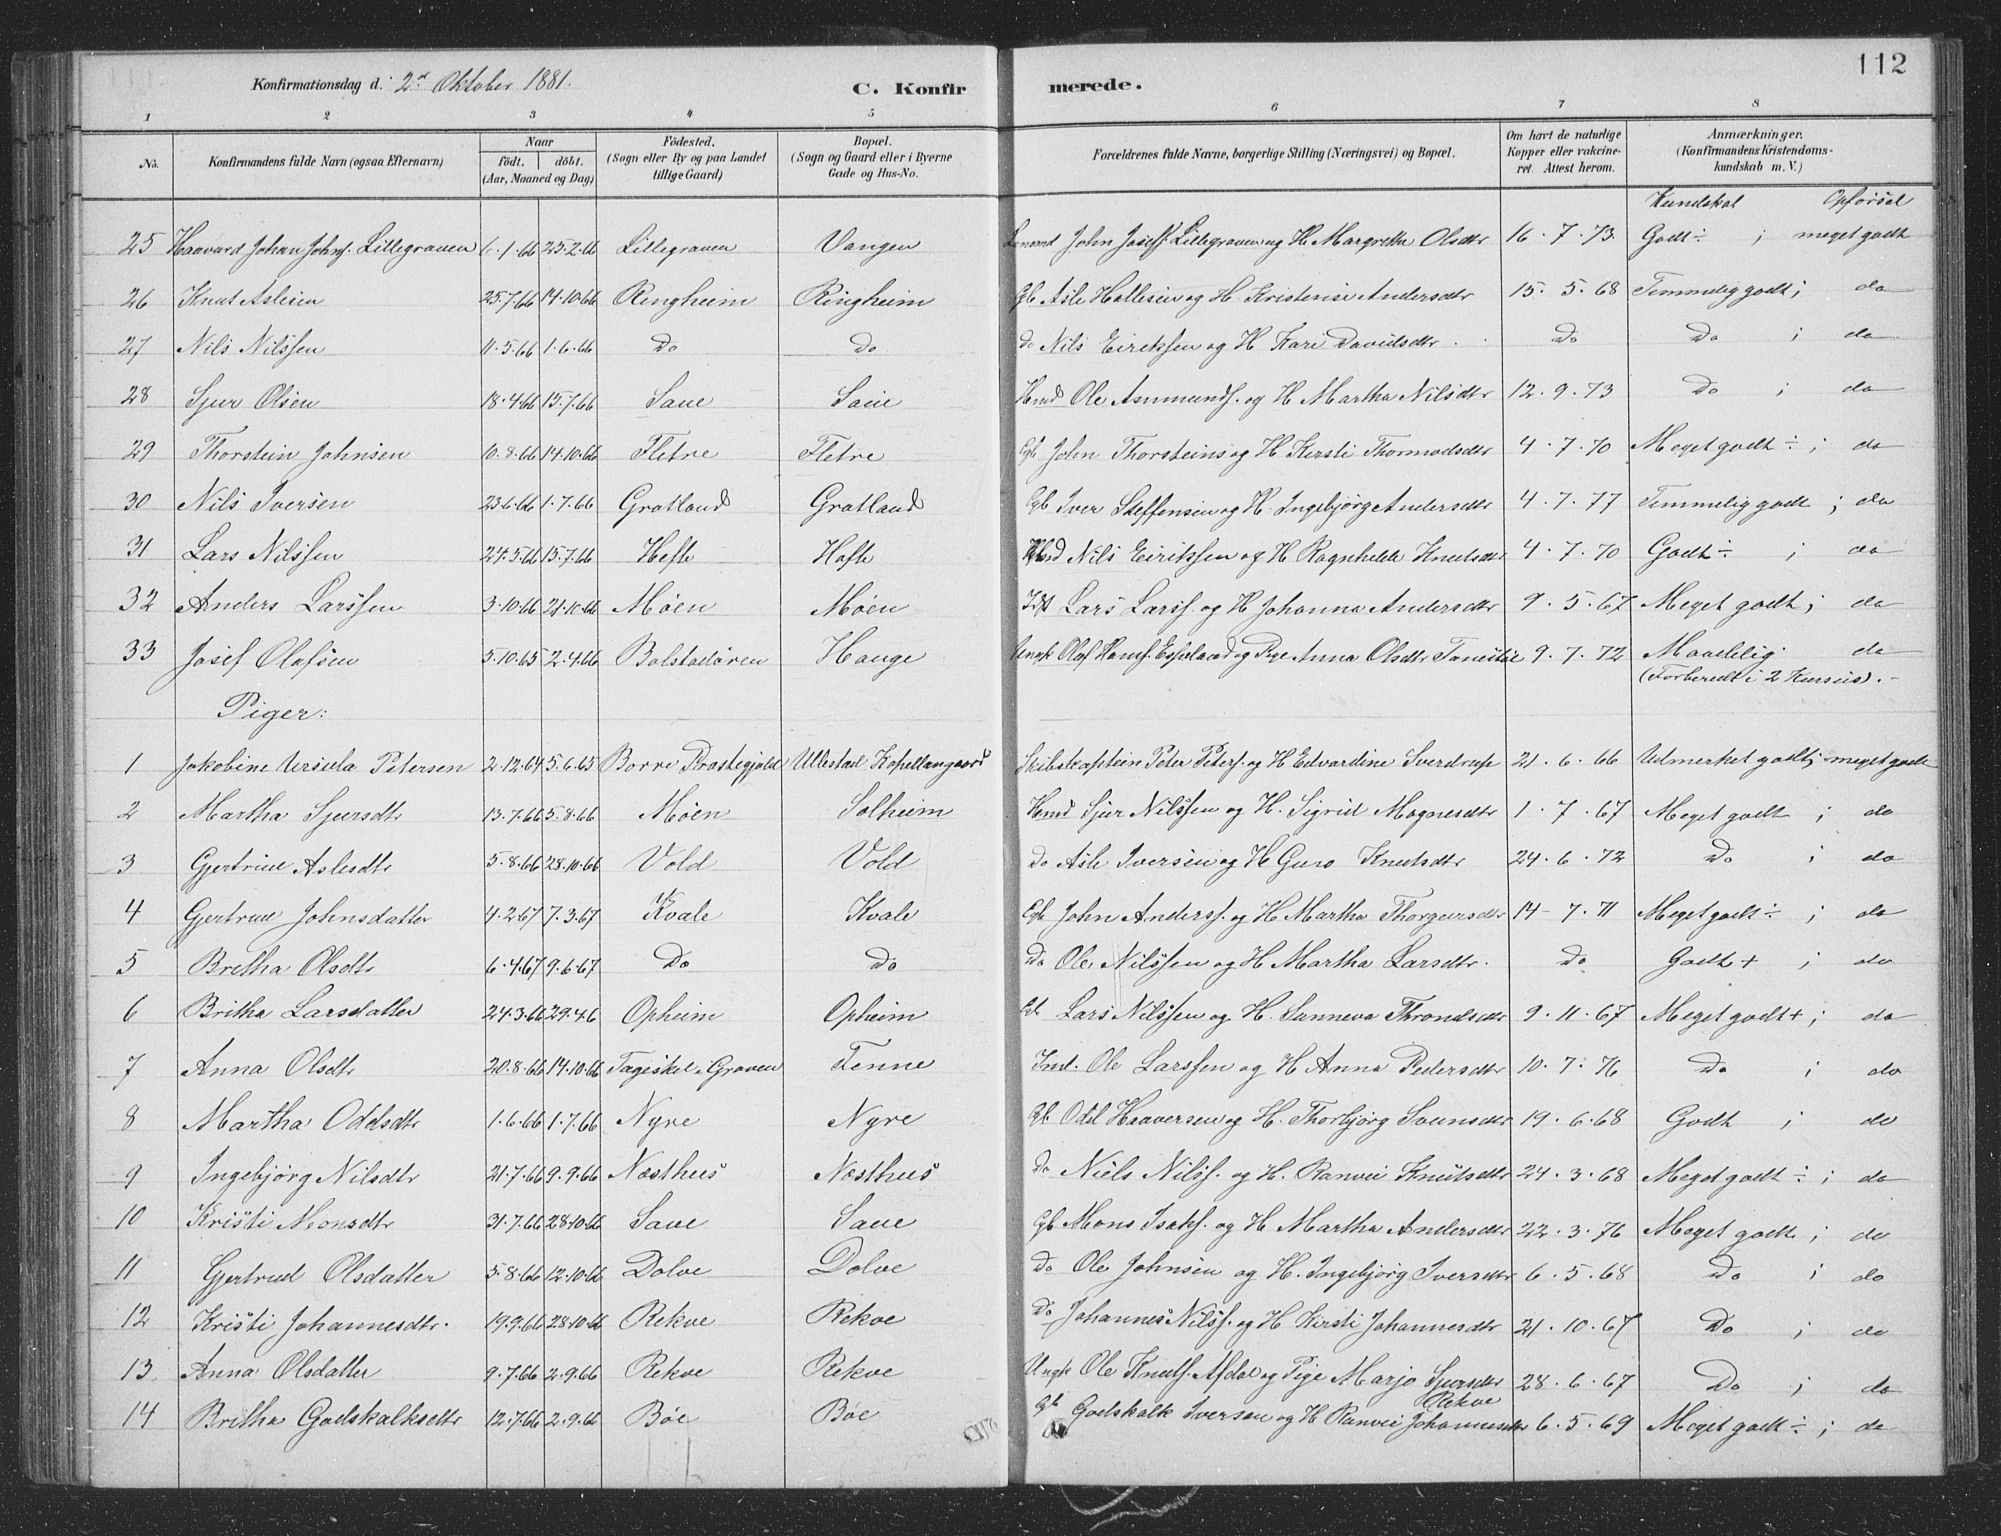 112
Konfirmationsdag d. 2den Oktober 1881. C. Konfirmerede.
1 2 3 4 5 6 7 8
No. Konfirmandens fulde Navn (ogsaa Efternavn) Naar födt. döbt. (Aar, Maaned og Dag) Födested. (Sogn eller By og paa Landet tillige Gaard) Bopæl. (Sogn og Gaard eller i Byerne Gade og Hus-No. Forældrenes fulde Navne, borgerlige Stilling (Næringsvei) og Bopæl. Om havt de naturlige Kopper eller vakcineret. Attest herom. Anmærkninger. (Konfirmandens Kristendomskundskab m. V.)
Kundskab Opførsel
25 Haavard Johan Johns. Lillegraven 6.1.66 25.2.66 Lillegraven Vangen John Josefs. Lillegraven og H. Margretha Olsdtr 16.7.73 Godt ÷ ; meget godt
26 Knut Aslesen 25.7.66 14.10.66 Ringheim Ringheim Gb Asle Hallesen og H. Kristense Andersdtr 15.5.68 Temmelig godt ; do
27 Nils Nilssen 11.5.66 1.6.66 Do Do do Nils Eirikssen og H Kari Davidsdtr. Do Do ; do
28 Sjur Olsen 18.4.66 15.7.66 Saue Saue Hmd Ole Asmunds. og H Martha Nilsdtr 12.9.73 Do ; do
29 Thorstein Johnsen 10.8.66 14.10.66 Fletre Fletre Gb John Thorsteins og H Kirsti Thormodsdtr 4.7.70 Meget godt ÷ ; do
30 Nils Iversen 23.6.66 1.7.66 Grotland Grotland Gb Iver Steffensen og H. Ingebjørg Andersdtr 4.7.77 Temmelig godt ; do
31 Lars Nilssen 24.5.66 15.7.66 Hefte Hefte Hmd Nils Eirikssen og H Ragnhilda Knutsdtr 4.7.70 Godt ÷ ; do
32 Anders Larssen 3.10.66 21.10.66 Møen Møen Lars Larss. og H Johanna Andersdtr 9.5.67 Meget godt ; do
33 Josef Olafsen 5.10.65 2.4.66 Bolstadøren Hauge Ungk Olaf Hans. Espeland og Pige Anna Olsdtr 9.7.72 Maadelig. do
(Forberedt i 2 Kursus). -
Piger:
1 Jakobine Ursula Petersen 2.12.64 5.6.65 Borre Præstegjeld Ullestad Kapellangaard Skibskaptein Peter Peters. og H Edvardine Sverdrup 21.6.66 Udmerket godt ; meget godt
2 Martha Sjursdtr 13.7.66 5.8.66 Møen Solheim Hmd Sjur Nilssen og H. Sigrid Magnesdtr 1.7.67 Meget godt ; do
3 Gjertrud Aslesdtr 5.8.66 28.10.66 Vold Vold Do Asle Iversen og H Guro Knutsdtr 24.6.72 Do ; do
4 Gjertrud Johnsdatter 4.2.67 7.3.67 Kvale Kvale Gb John Anderss. og H Martha Thorgersdtr 14-7.71 Meget godt ÷ ; do
5 Bretha Olsdtr 6.4.67 9.6.67 Do Do Do Ole Nilssen og H Martha Larsdtr. Do Godt + ; do
6 Britha Larsdatter 24.3.66 29.4.6 Opheim Opheim Gb Lars Nilssen og H. Sunneva Throndsdtr 9.11.67 Meget godt + ; do
7 Anna Olsdtr 20.8.66 14.10.66 Graven Tenne Ind. Ole Larssen og H Anna Pedersdtr 10.7.76 Do ; do
8 Martha Oddsdtr 1.6.66 1.7.66 Nyre Nyre Gb Odd Haaversen og H. Thorbjørg Svensdtr 19.6.68 Godt ; do
9 Ingebjørg Nilsdtr 21.7.66 9.9.66 Næsthus Næsthus Do Niels Nilss. og H. Ranvei Knutsdtr 24.3.68 Meget godt ÷ ; do
10 Kristi Monsdtr 31.7.66 28.10.66 Saue Saue Gb Mons Isaks. og H Martha Andersdtr 22.3.76 Meget godt ; do
11 Gjertrud Olsdatter 5.8.66 12.10.66 Dolve Dolve Do Ole Johnsen og H. Ingebjørg Iversdtr 6.5.68 Do ; do
12 Kristi Johannesdtr. 19.9.66 28.10.66 Rekve Rekve Do Johannes Nilss. og H Kirsti Johannesdtr 21.10.67 Do ; do
13 Anna Olsdatter 9.7.66 2.9.66 Rekve Rekve Ungk Ole Knuts. Afdal og Pige Marjo Sjursdtr Rekve 28.6.67 Do ; do
14 Bretha Godskalksdtr 12.7.66 2.9.66 Bøe Bøe Gb Godskalk Iversen og H Ranvei Johannesdtr 6.5.69 Meget godt ÷ ; do